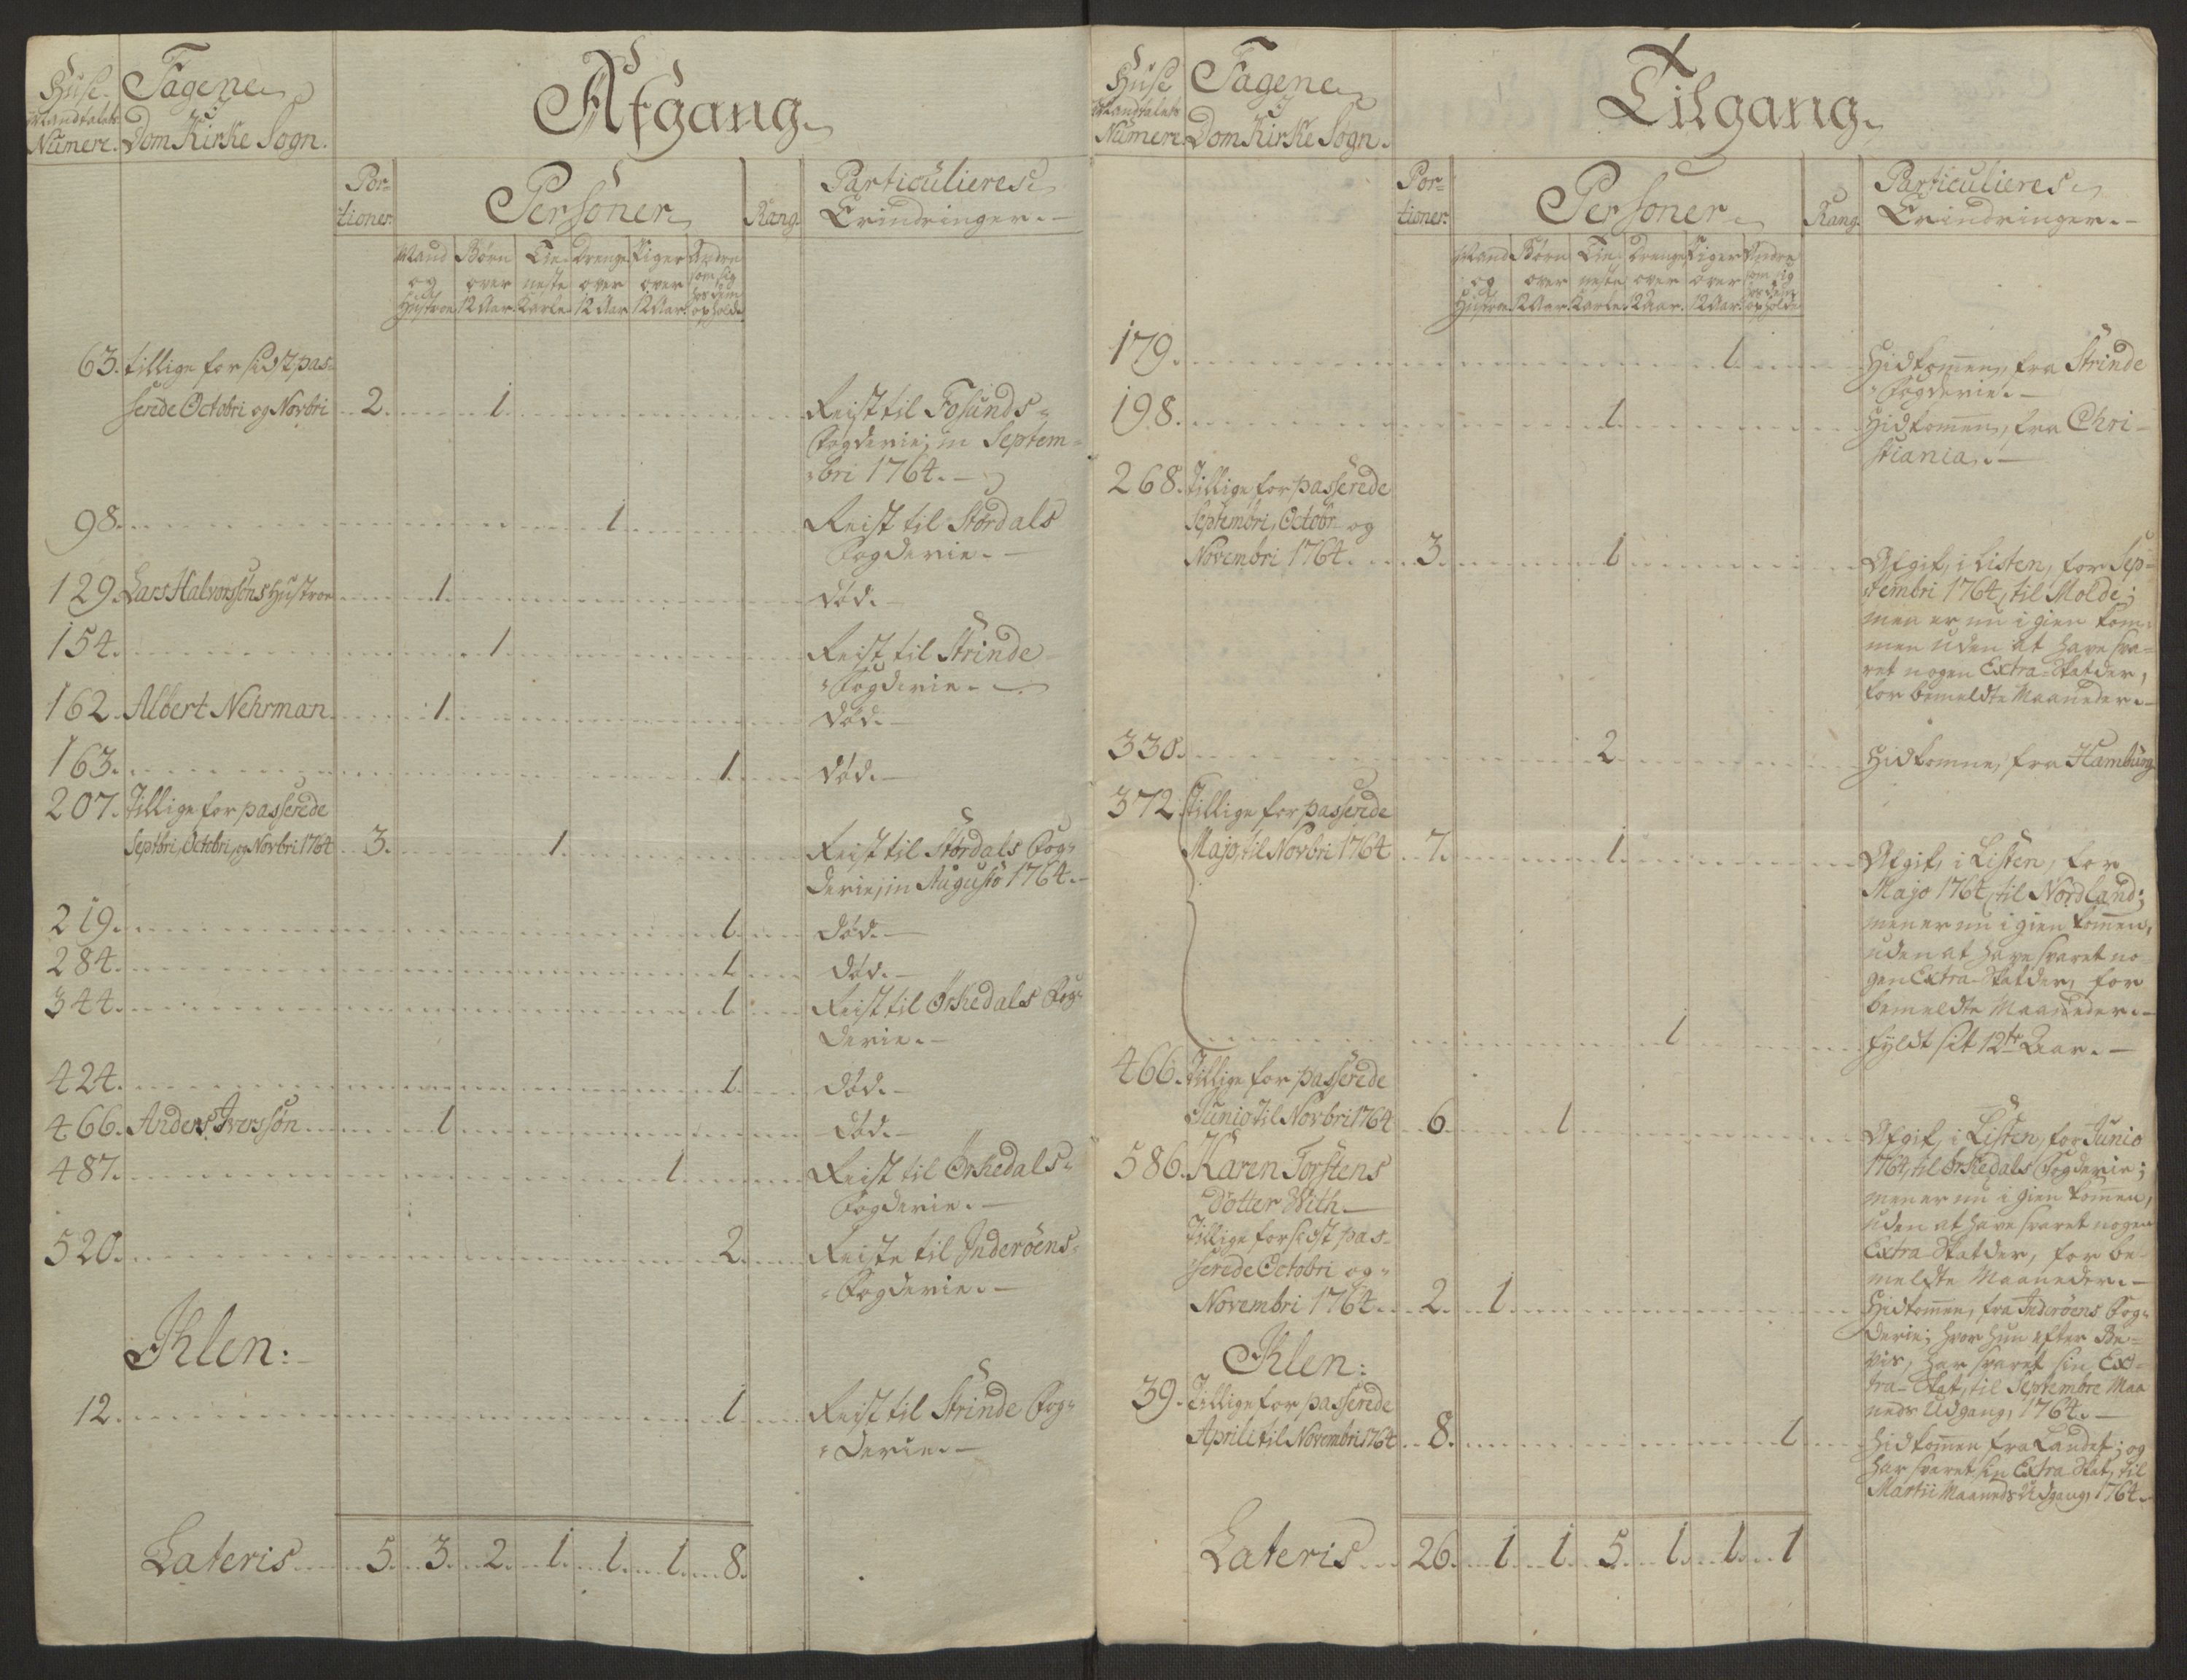 Huse
Mandtalets
Numere.
Tagene
I
Dom Kirke Sogn.
Afgang.
Por-
tioner.
Personer
Rang.
Particulieres
Erindringer.-
Mand
og
Hustroe
Børn
over
12 Aar.
Tie-
neste
Karle
Drenge
over
12 Aar
Piger
over
12 Aar.
Andre
som sig
hos dem
opholde
63. tillige for sidst pas-
serede Octobri og Novbri 2. 1. Reist til Fosunds-
Fogderie; in Septem-
bri 1764.-
98. 1. Reist til Stördals
Fogderie.-
129. Lars Halvorssøns Hustroe 1. død.
154. 1. Reist til Strinde
Fogderie.-
162. Albert Nehrman 1. død.-
163. 1. død.-
207. Tillige for passerede
Septbri, Octobri, og Novbri 1764 3. 1. Reist til Stördals Fog-
derie, in Augusto 1764.-
219. 1. død.-
284. 1. død.-
344. 1. Reist til Örkedals Fog-
derie.-
424. 1. død.-
466. Anders Iverssøn 1. død.-
487. 1. Reist til Örkedals-
Fogderie.-
520. 2. Reiste til Inderöens-
Fogderie.-
Ihlen:-
12. 1. Reist til Strinde Fog-
derie.-
Lateris 5. 3. 2. 1. 1. 1. 8.
Huse
Mandtalets
Numere
Tagene
I
Dom Kirke Sogn.
Tilgang.
Por-
tioner.
Personer
Rang.
Particulieres
Erindringer.-
Mand
og
Hustroe
Børn
over
12 Aar.
Tie-
neste
Karle
Drenge
over
12 Aar.
Piger
over
12 Aar.
Andre
som sig
hos dem
opholde
179. 1. Hidkommen, fra Strinde
Fogderie.-
198. 1. Hidkommen, fra Chri-
stiania.-
268. Tillige for passerede
Septembri, Octobr og
Novembri 1764. 3. 1. Afgik, i Listen, for Sep-
tembri 1764, til Molde;
men er nu igien kom-
men uden at have sva-
ret nogen Extra-Skatder,
for bemeldte Maaneder.-
330. 2. Hidkomne, fra Hamburg
372. Tillige for passerede
Majo, til Novbri 1764 7. 1. Afgik, i Listen, for
Majo 1764, til Nordland;
men er nu igien kommen,
uden at have svaret no-
gen Extra-Skatder, for
bemeldte Maaneder.-
1 fyldt sit 12te Aar.-
466. Tillige for passerede
Junio til Novbri 1764 6. 1. Afgik, i Listen, for Junio
1764, til Örkedals Fogderie;
men er nu igien kommen,
uden at have svaret nogen
Extra-Skatder, for be-
meldte Maaneder.-
586. Karen Torstens
Dotter With.-
Tillige for sidst pas-
serede Octobri og
Novembri 1764. 2. 1. Hidkommen, fra Inderöens Fog-
derie; hvor hun efter Be-
vis, har svaret sin Ex-
tra-Skat, til Septembre Maa
neds Udgang, 1764.-
Ihlen:
39. Tillige for passerede
Aprili til Novembri 1764 8. 1 Hidkommen fra Landet; og
har svaret sin Extra Skat, til
Martii Maaneds Udgang, 1764.-
Lateris 26. 1. 1. 5. 1. 1. 1